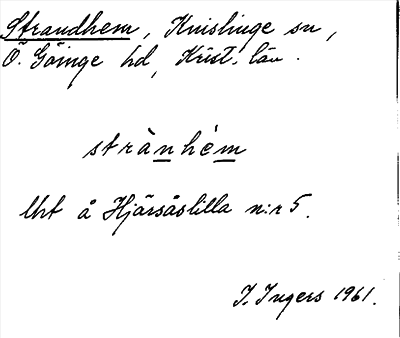 Strandhem, Knislinge sn,
Ö. Göinge hd, Krist. län.
strànhém
Urt å Hjärsåslilla n:r 5.
I. Ingers 1961.